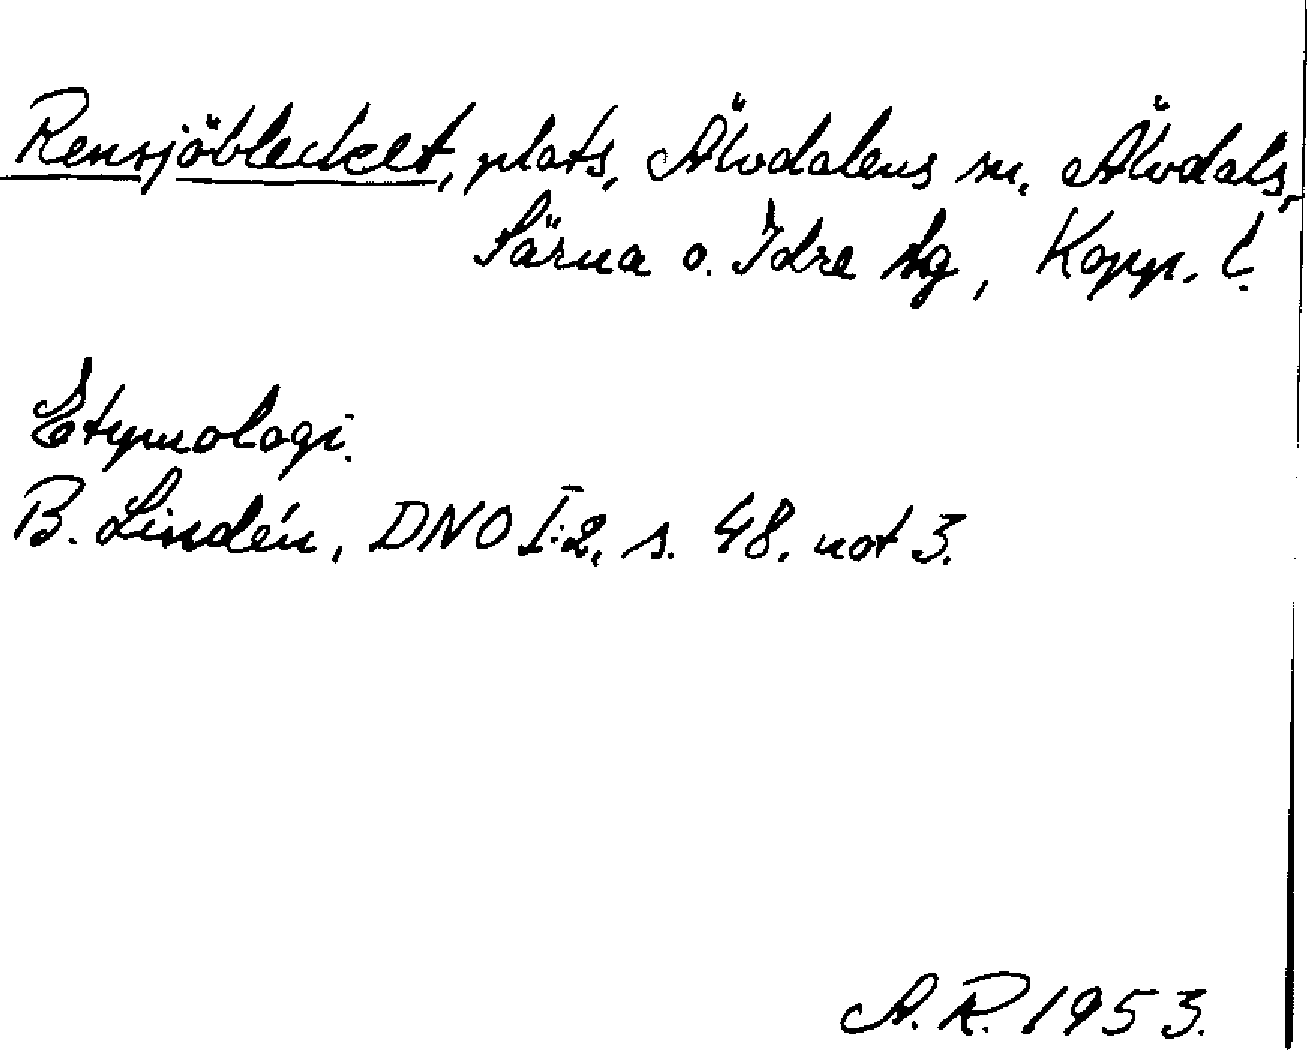 Rensjöbleckelt, plats, Älvdalens sn, Älvdals,
Särna o. Idre tg, Kopp. l.
Etymologi.
B. Lindén, DNO I:2, s. 48. not 3.
A. R. 1953.